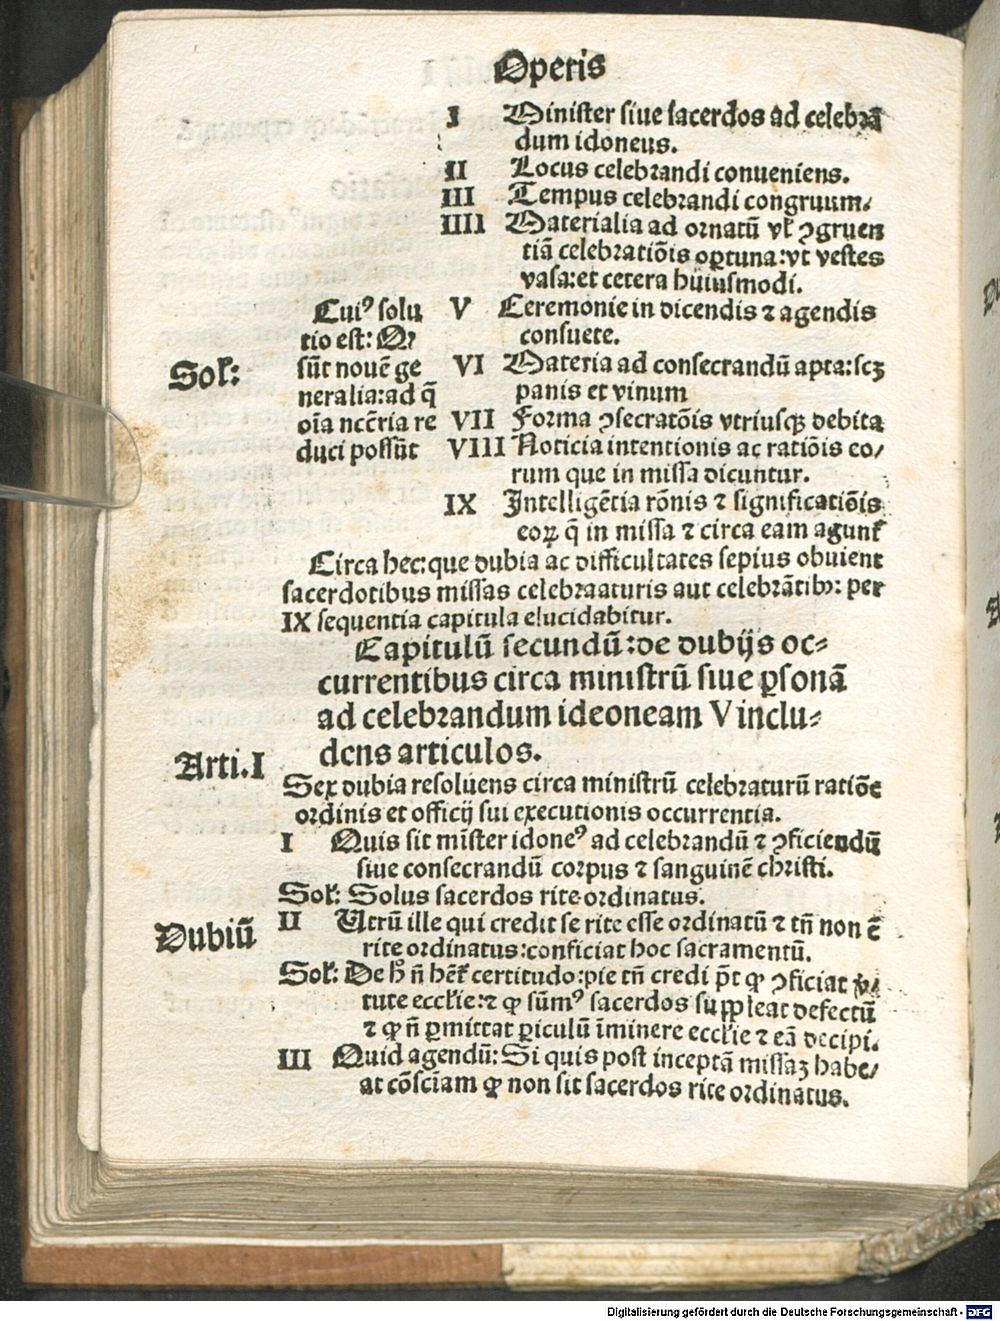 Operis
I Minister siue sacerdos ad celebrā
dum idoneus.
II Locus celebrandi conueniens.
III Tempus celebrandi congruum.
IIII Materialia ad ornatū vl' ꝯgruen
tiā celebratiōis oꝑtuna: vt vestes
vasa: et cetera huiusmodi.
Cuiꝰ solu
tio est: Qꝛ
Sol': sūt nouē ge
neralia: ad q̄
oīa nccͤria re
duci possūt
V Ceremonie in dicendis ⁊ agendis
consuete.
VI Materia ad consecrandū apta: scꝫ
panis et vinum
VII Forma ꝯsecratōis vtriusqꝫ debita
VIII Noticia intentionis ac ratiōis eo/
rum que in missa dicuntur.
IX Intelligētia rōnis ⁊ significatiōis
eoꝝ q̄ in missa ⁊ circa eam agunt᷑
Circa hec: que dubia ac difficultates sepius obuient
sacerdotibus missas celebraaturis aut celebrātibꝫ: per
IX sequentia capitula elucidabitur.
Capitulū secundū: de dubijs oc-
currentibus circa ministrū siue ꝑsonā
ad celebrandum ideoneam V inclu-
dens articulos.
Arti. I
Sex dubia resoluens circa ministrū celebraturū ratiōe
ordinis et officij sui executionis occurrentia.
I Quis sit mīster idoneꝰ ad celebrandū ⁊ ꝯficiendū
siue consecrandū corpus ⁊ sanguinē christi.
Sol': Solus sacerdos rite ordinatus.
Dubiū II Utrū ille qui credit se rite esse ordinatū ⁊ tn̄ non ē
rite ordinatus: conficiat hoc sacramentū.
Sol': De hͦ n̄ het᷑ certitudo: pie tn̄ credi pt̄ ꝙ ꝯficiat
tute eccl'ie: ⁊ ꝙ sūmꝰ sacerdos suppleat defectū
⁊ ꝙ n̄ ꝑmittat ꝑiculū īminere eccl'ie ⁊ eā decipi.
III Quid agendū: Si quis post inceptā missaꝫ habe/
at cōsciam ꝙ non sit sacerdos rite ordinatus.
Digitalisierung gefördert durch die Deutsche Forschungsgemeinschaft - DFG